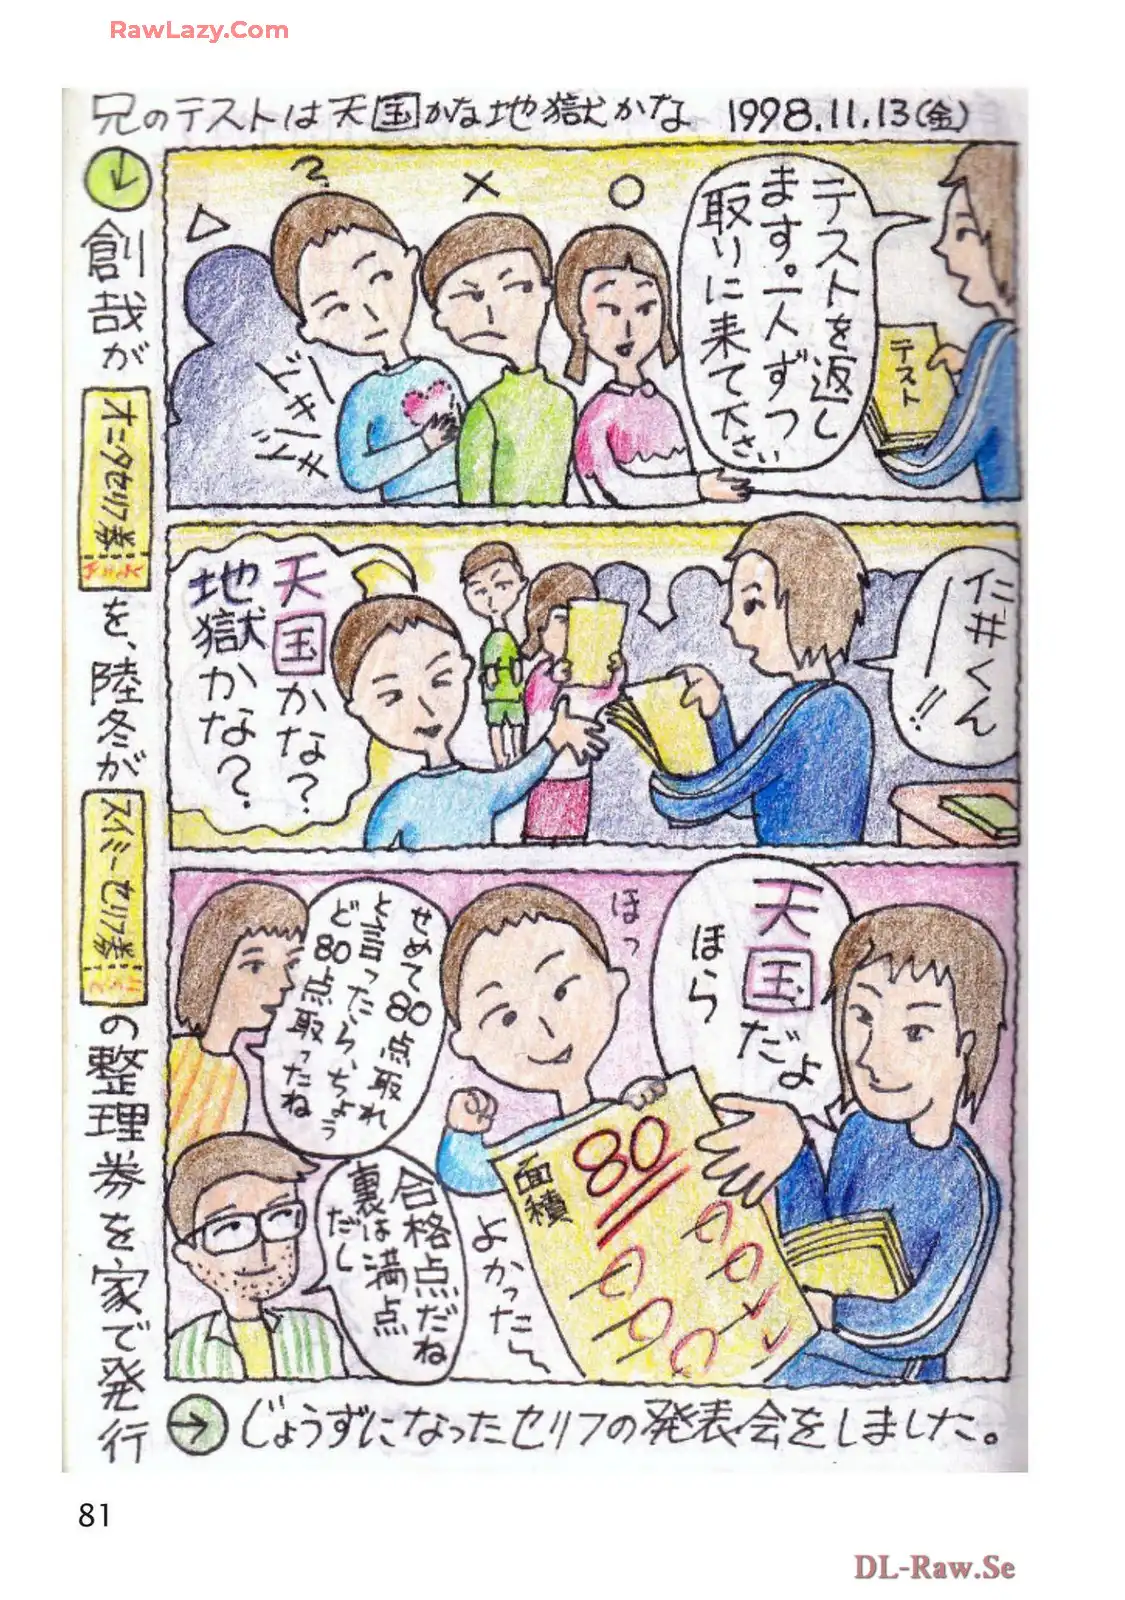 RawLazy.Com
兄のテストは天国かな地獄かな 1998.11.13(金)
テストを返し
ます。一人ずつ
取りに来て下さい
△
?
×
○
ドキドキ
テスト
仁井くん
ー!!
天国かな?
地獄かな?
天国だよ
ほら
ほっ
せめて80点取れ
と言ったらちょう
ど80点取ったね
80
面積
よかったー
合格点だね
裏は満点
だし
↓
創哉が
オニタセリフ券
を、陸冬が
スイミーセリフ券
の整理券を家で発行
→じょうずになったセリフの発表会をしました。
81
DL-Raw.Se